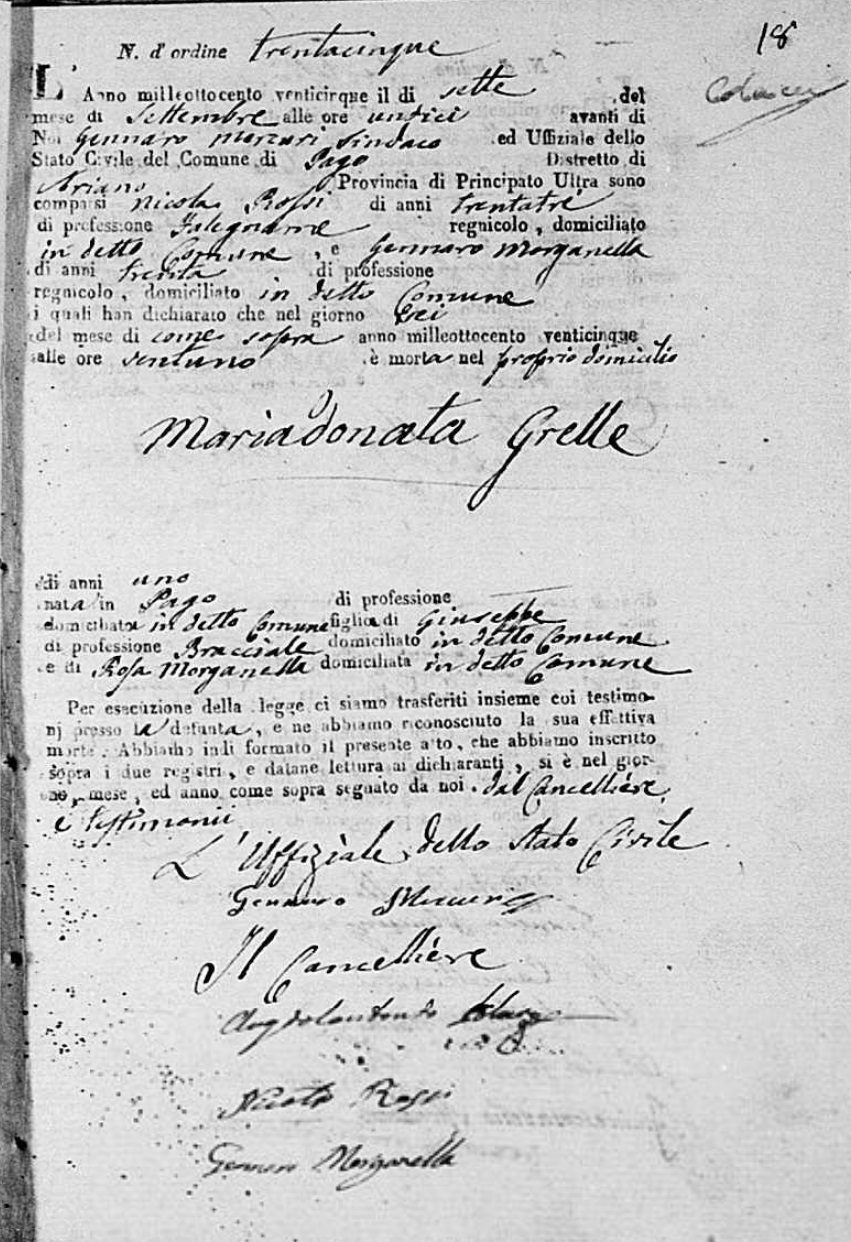 18
N. d'ordine trentacinque
L' Anno milleottocento venticinque il di sette del
mese di Settembre alle ore undici avanti di
Noi Gennaro Mercuri Sindaco ed Uffiziale dello
Stato Civile del Comune di Pago Distretto di
Ariano Provincia di Principato Ultra sono
comparsi Nicola Rossi di anni trentatrè
di professione Falegname regnicolo, domiciliato
in detto Comune, e Gennaro Morganella
di anni trenta di professione
regnicolo, domiciliato in detto Comune
i quali han dichiarato che nel giorno sei
del mese di come sopra anno milleottocento venticinque
alle ore ventuno è morta nel proprio domicilio
Mariadonata Grelle
di anni uno
nata in Pago di professione
domiciliata in detto Comune figlia di Giuseppe
di professione Bracciale domiciliato in detto Comune
e di Rosa Morganella domiciliata in detto Comune
Per esecuzione della legge ci siamo trasferiti insieme coi testimo-
nj presso la defunta, e ne abbiamo riconosciuto la sua effettiva
morte. Abbiamo indi formato il presente atto, che abbiamo inscritto
sopra i due registri, e datane lettura ai dichiaranti, si è nel gior-
no, mese, ed anno come sopra segnato da noi dal Cancelliere
e testimonii
L'Uffiziale dello Stato Civile
Gennaro Mercuri
Il Cancelliere
Nicola Rossi
Gennaro Morganella